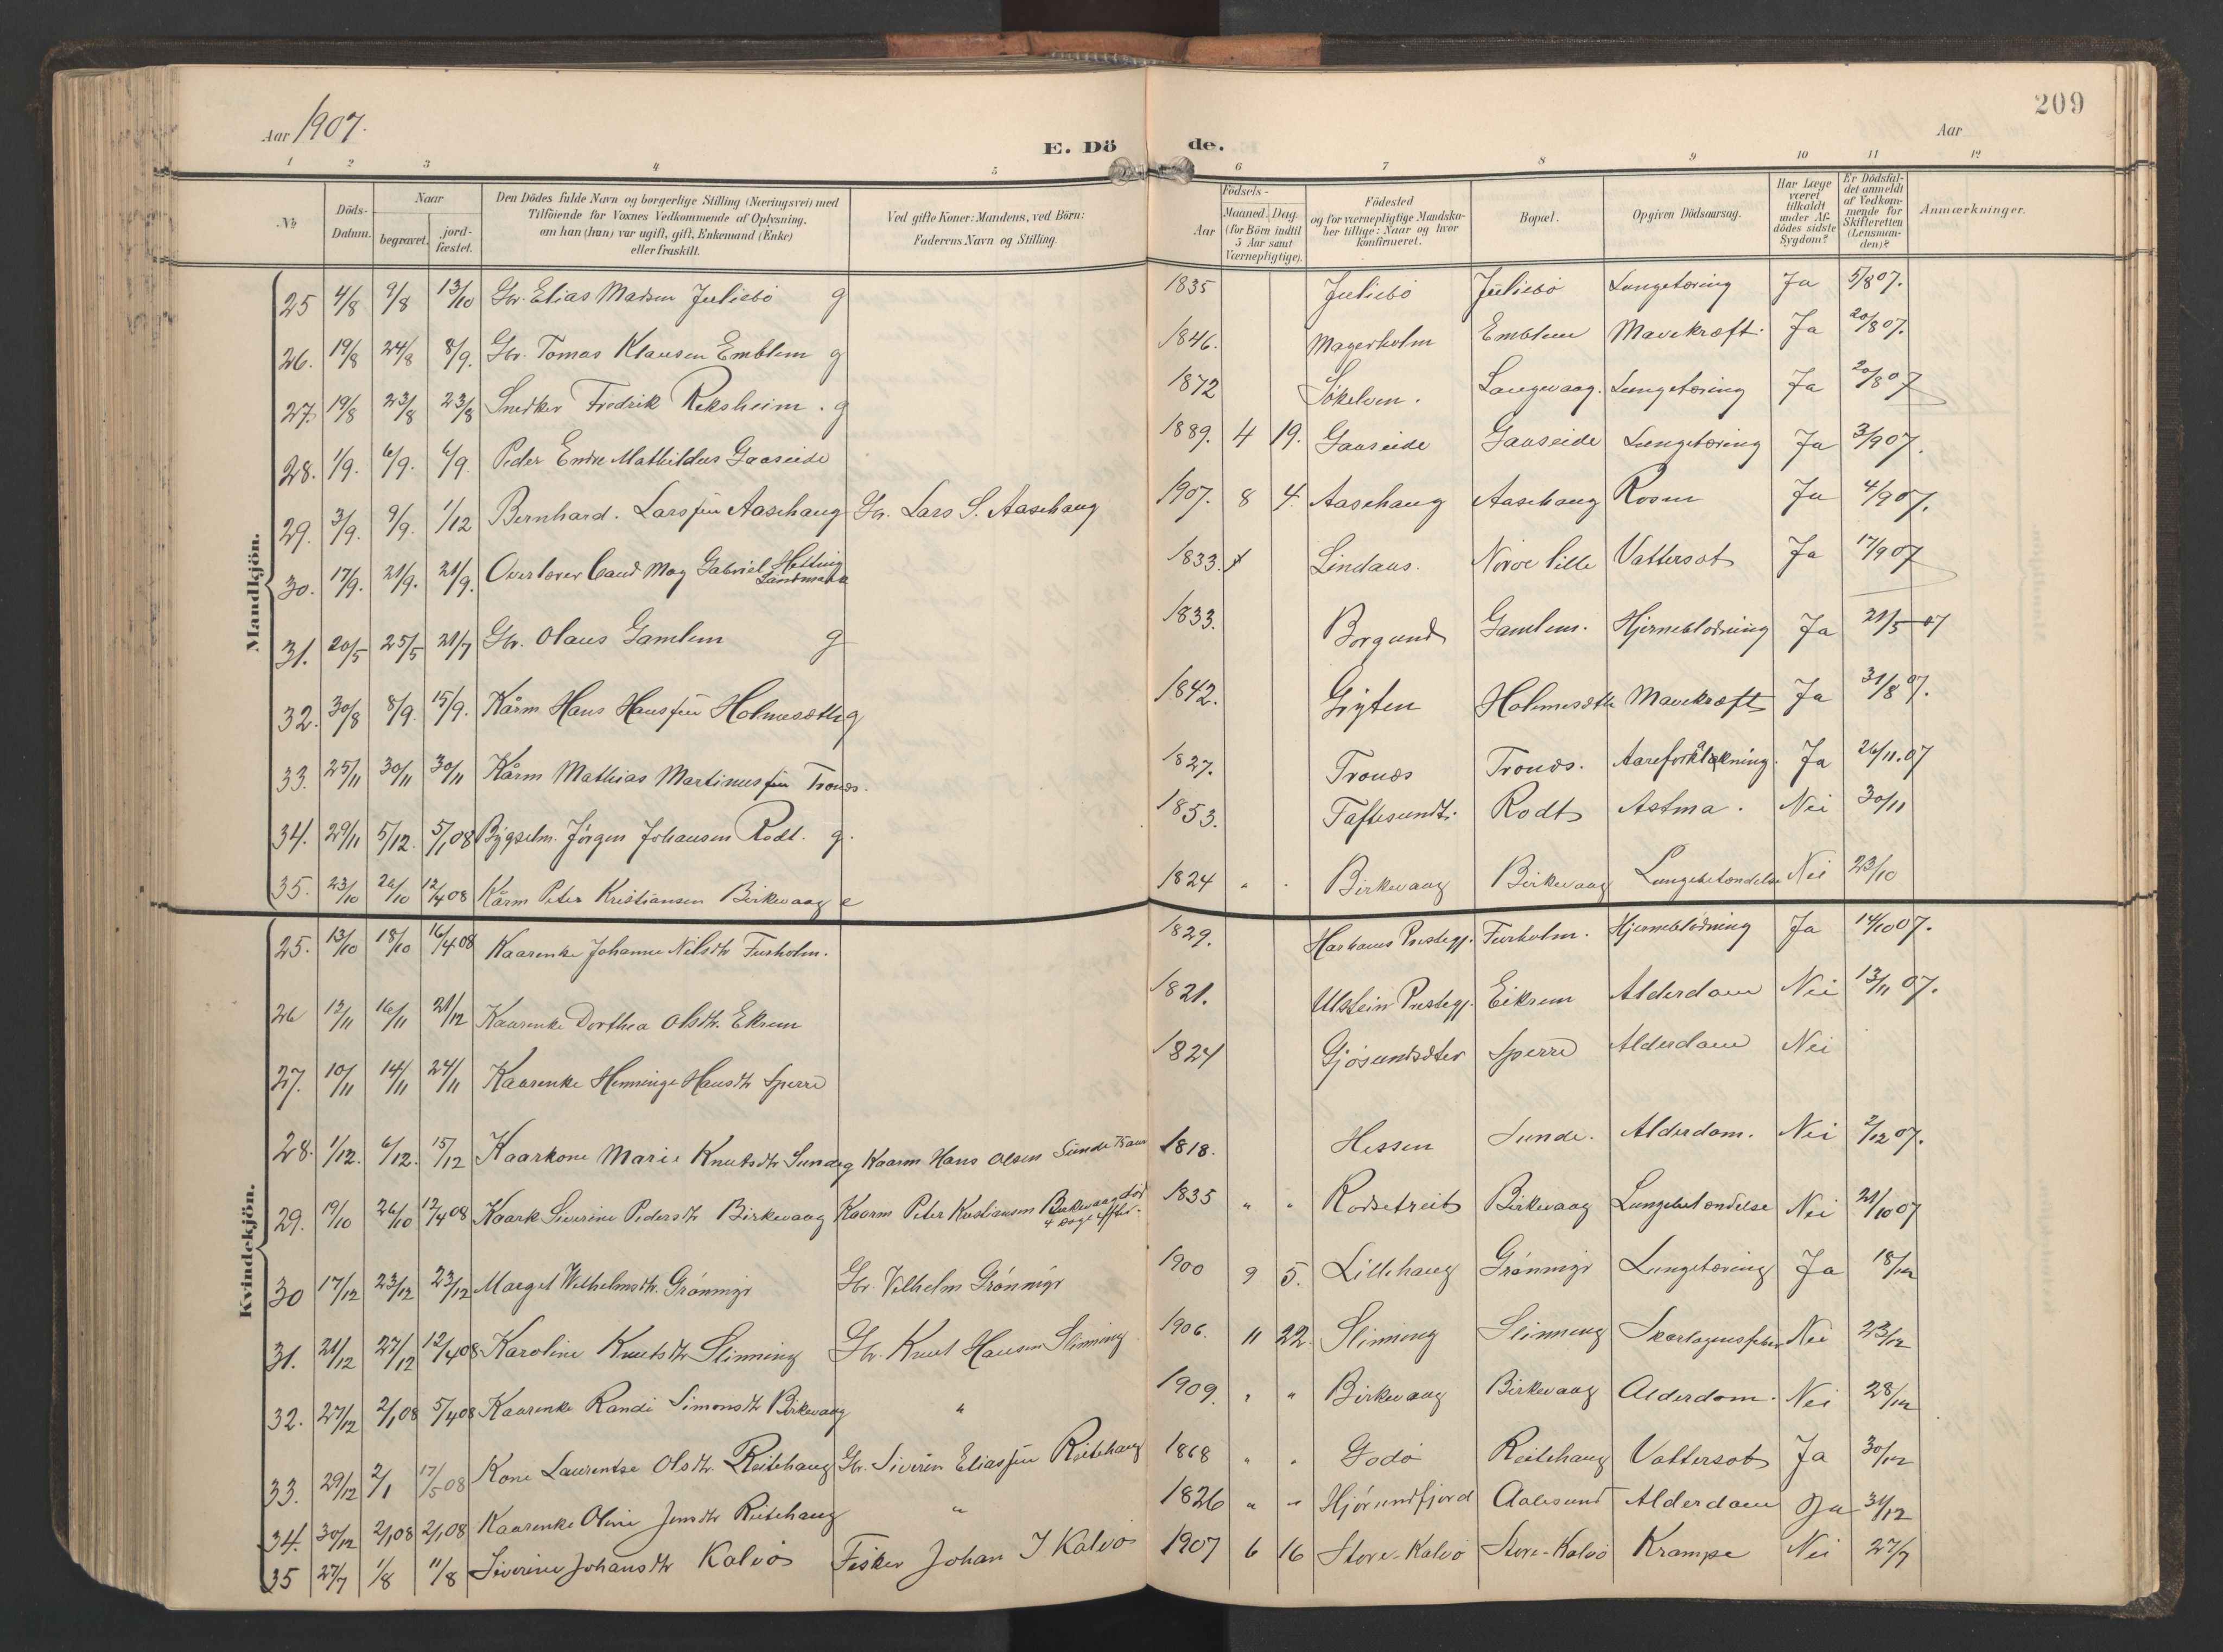 209
Aar 1907.
Aar
E. Dö de.
1 2 3 4 5 6 7 8 9 10 11 12
No
Döds-Datum.
Naar
begravet.
jord-fæstet.
Den Dödes fulde Navn og borgerlige Stilling (Næringsvei) med
Tilföiende for Voxnes Vedkommende af Oplysning,
om han (hun) var ugift, gift, Enkemand (Enke)
eller fraskilt.
Ved gifte Koner: Mandens, ved Börn:
Faderens Navn og Stilling.
Födsels-
Aar
Maaned. Dag.
(for Börn indtil
5 Aar samt
Værnepligtige).
Födested
og for værnepligtige Mandska-
ber tillige: Naar og hvor
konfirmeret.
Bopæl.
Opgiven Dödsaarsag.
Har Læge
været
tilkaldt
under Af-
dödes sidste
Sygdom?
Er Dödsfal-
det anmeldt
af Vedkom-
mende for
Skifteretten
(Lensman-
den)?
Anmærkninger.
Mandkjön.
25 4/8 9/8 13/10 Gbr. Elias Madsen Juliebö g 1835 Juliebö Juliebö Lungetæring Ja 5/8 07.
26. 19/8 24/8 8/9. Gbr. Tomas Klausen Emblem g 1846. Magerholm Emblem Mavekræft. Ja 20/8 07.
27. 19/8 23/8 23/8 Snedker Fredrik Reksheim. g 1872 Sökelven. Langevaag. Lungetæring Ja 20/8 07
28. 1/9. 6/9. 6/9. Peder Endre Mathildus Gaaseide 1889. 4 19. Gaaseide Gaaseide Lungetæring Ja 3/9 07.
29. 3/9. 9/9. 1/12 Bernhard. Larssön Aasehaug Gr. Lars S. Aasehaug 1907. 8 4. Aasehaug Aasehaug Rosen Ja 4/9 07.
30. 17/9. 21/9. 21/9. Overlærer Cand Mag Gabriel Helting Landmark 1833. Lindaas. Nörve Ville Vattersot Ja 17/9 07
31. 20/5 25/5 21/7 Gbr. Olaus Gamlem g 1833. Borgund Gamlem. Hjerneblödning Ja 21/5 07
32. 30/8 8/9. 15/9. Kårm Hans Hanssön Holmesæth g 1842. Gryten Holmesæth Mavekræft Ja 31/8 07.
33. 25/11 30/11 30/11 Kårm Mathias Martinussön Trones. 1827. Trones Trones. Aareforkalkning. Ja 26/11.07
34. 29/11 5/12. 5/1 08 Bygselm. Jörgen Johansen Rödt. g. 1853. Taftesundt. Rödt Astma. Nei 30/11
35. 23/10 26/10 12/4 08 Kårm Peter Kristiansen Birkevaag e 1824 " " Birkevaag Birkevaag Lungebetændelse Nei 23/10
Kvindekjön.
25. 13/10 18/10 16/4 08 Kaarenke Johanne Nilsdtr Furholm. 1829. Harhams Prestegj. Furholm. Hjerneblödning Ja 14/10 07.
26 12/11 16/11 21/12 Kaarenke Dorthea Olsdtr. Ekrem 1821. Ulstein Prestegj. Eikrem Alderdom Nei 13/11 07.
27. 10/11 14/11 24/11 Kaarenke Henninge Hansdtr Sperre 1824 Gjösundsæter Sperre Alderdom Nei
28. 1/12. 6/12. 15/12 Kaarkone Marie Knutsdtr Sunde g Kaarm Hans Olsen Sunde 1818. Hessen Sunde. Alderdom. Nei 2/12 07.
29. 19/10 26/10 12/4 08 Kaark Severine Pedersdtr Birkevaag Kaarm Peter Kristiansen Birkevaag död 4 dage efter. 1835 " " Rodsetreit Birkevaag Lungebetændelse Nei 21/10 07
30 17/12 23/12 23/12 Marget Wilhelmsdtr. Grönmyr Gbr. Vilhelm Grönmyr 1900 9 5. Lillehaug Grönmyr Lungetæring Ja 18/12
31. 21/12 27/12 12/4 08 Karoline Knutsdtr Slinning Gbr. Knut Hansen Slinning 1906. 11 22. Slinning Slinning Skarlagensfeber Nei 23/12
32. 27/12 2/1 08 5/4 08 Kaarenke Randi Simonsdtr Birkevaag " 1909. " " Birkevaag Birkevaag Alderdom. Nei 28/12
33. 29/12 2/1 17/5 08 Kone Laurentse Olsdtr. Reitehaug Gbr. Siverin Eliassön Reitehaug 1868 " " Godö Reitehaug Vattersot Ja 30/12
34. 30/12 2/1 08 2/1 08 Kaarenke Oline Jensdtr Reitehaug " 1826 " " Hjörundfjord Aalesund Alderdom Ja 31/12
35 27/7 1/8 11/8 Siverine Johansdtr Kalvö Fisker Johan J Kalvö 1907 6 16 Store-Kalvö Store-Kalvö Krampe Nei 27/7